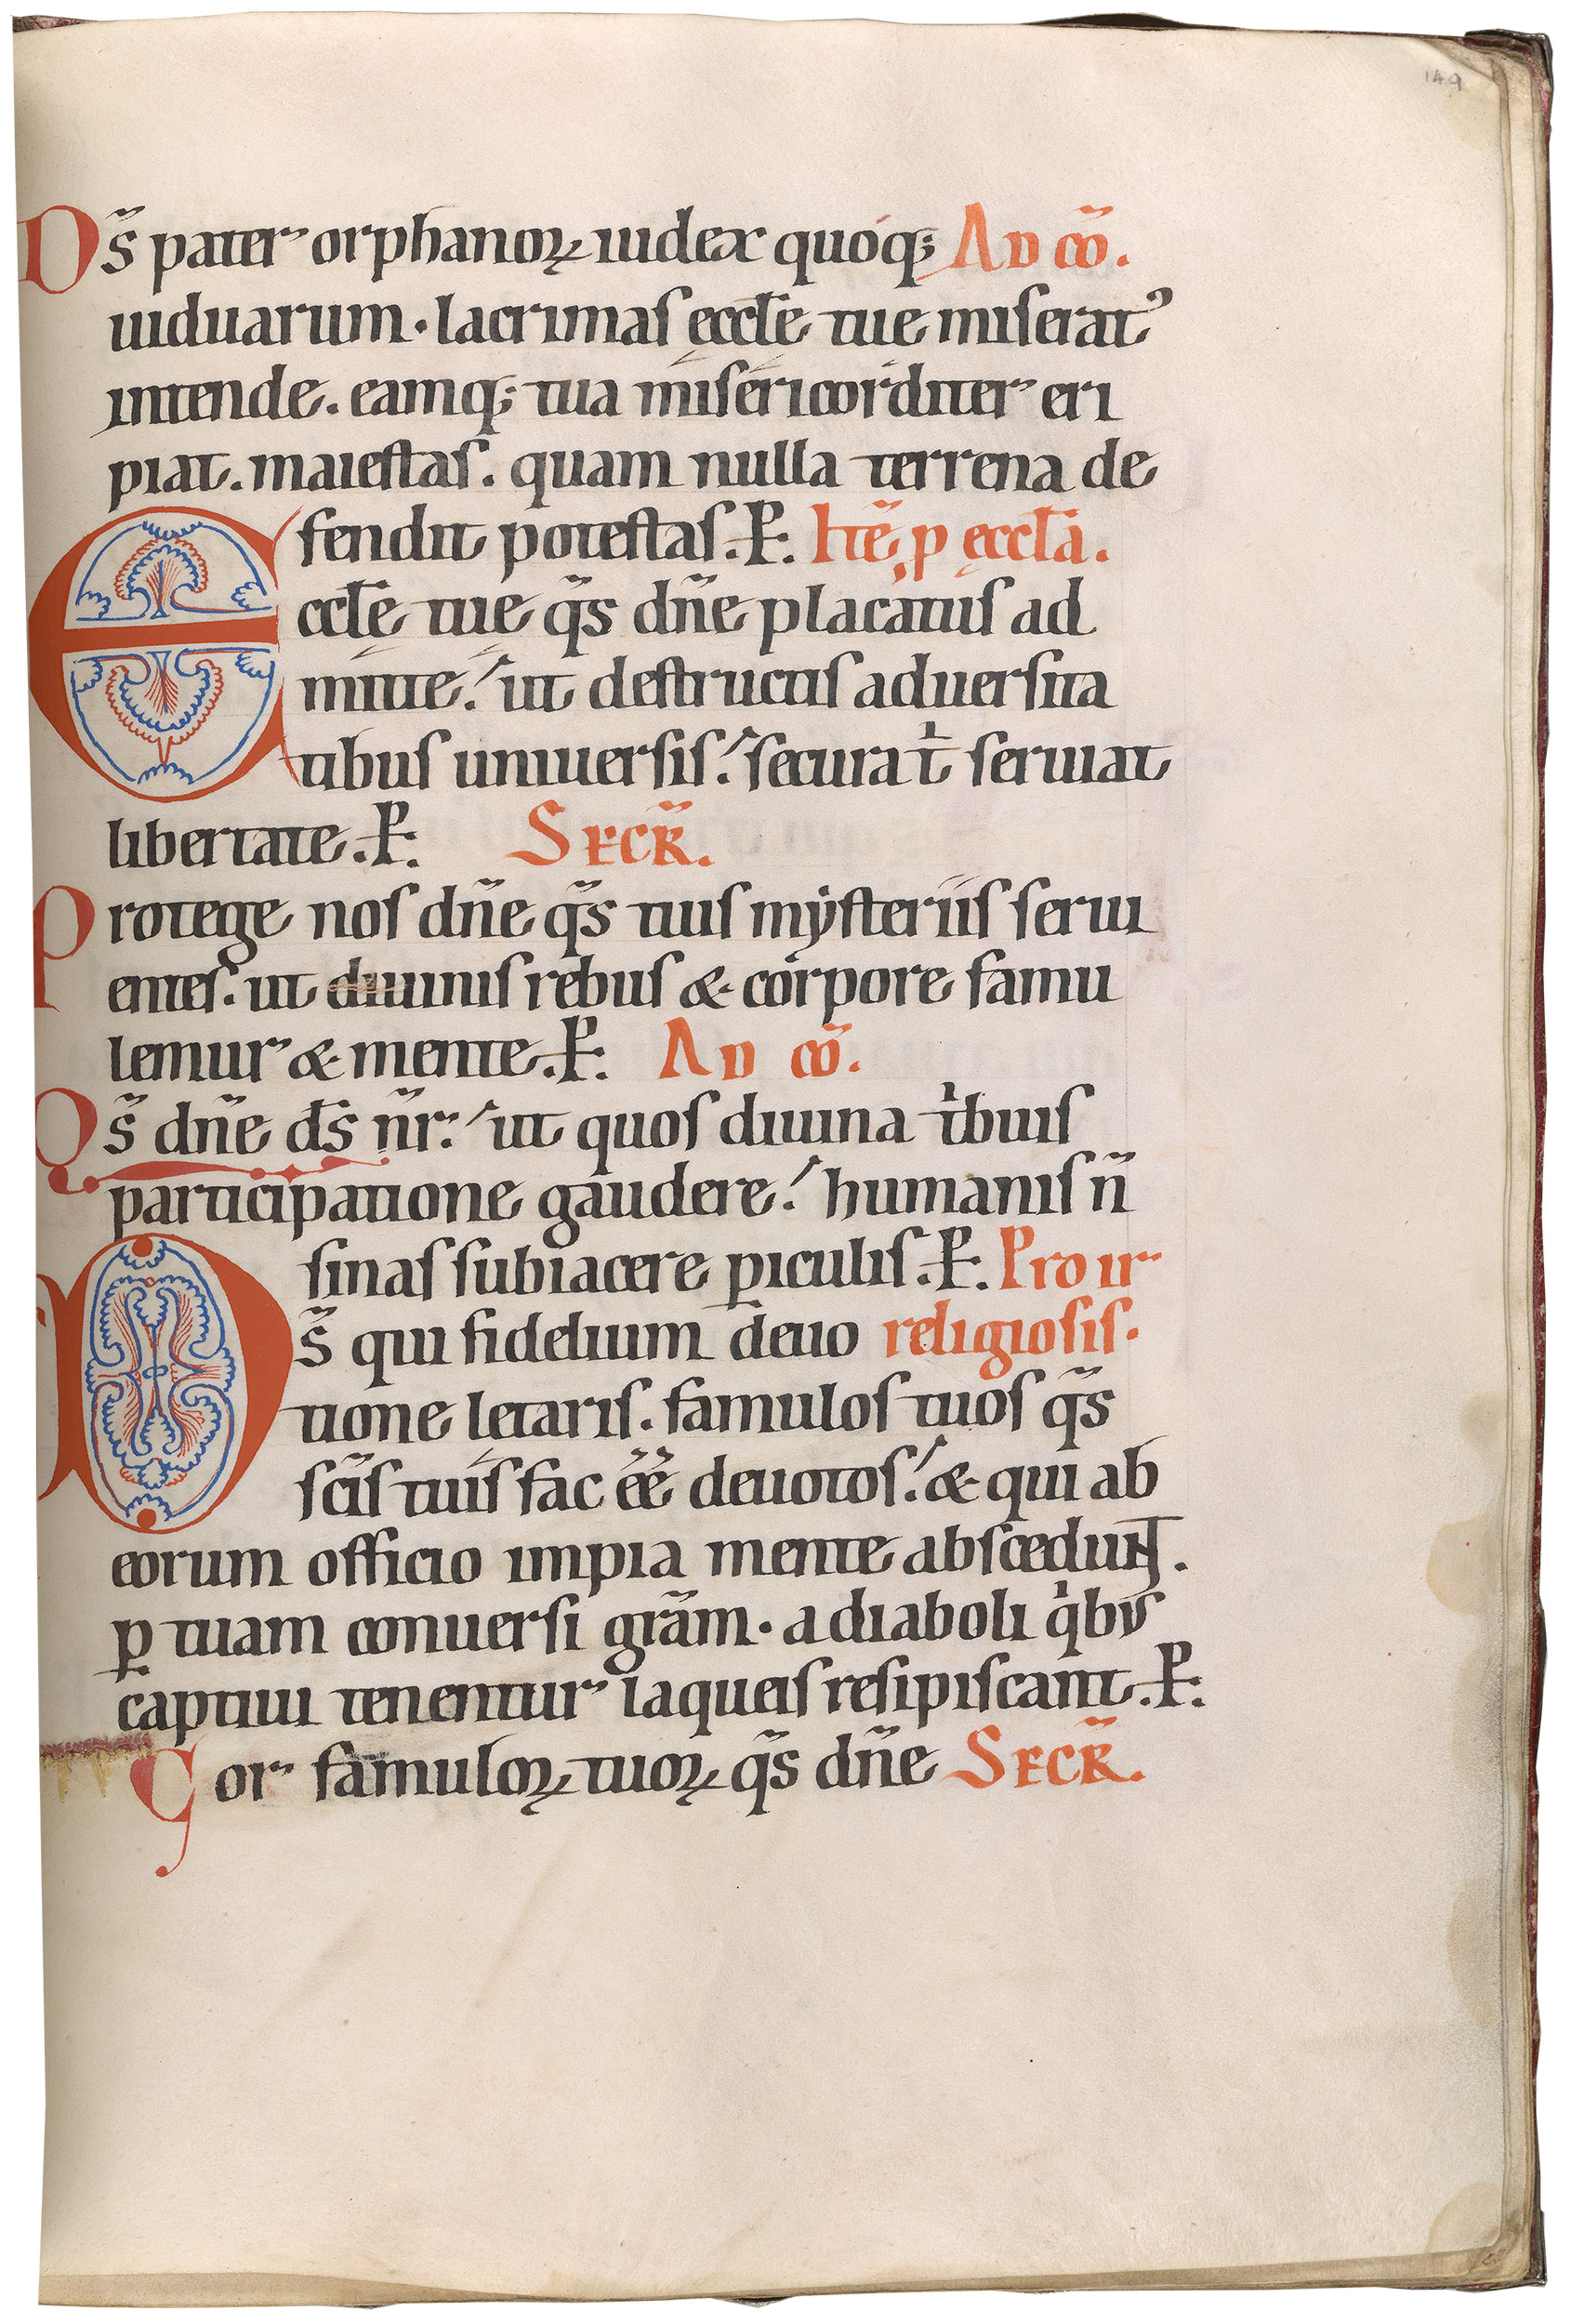 149
Ds̃ pater orphanoꝝ iudex quoq; Ad cõ.
uiduarum · lacrimas ęccłe tue miserat᾿
intende. eamq; tua misericorditer eri
piat. maiestas. quam nulla terrena de
fendit potestas. P̵. Itẽ ꝓ ęccła.
Eccłe tue q̃s dñe placatus ad
mitte. ut destructis aduersita
tibus uniuersis. secura tͥ seruiat
libertate. P̵. Secr̃.
Protege nos dñe q̃s tuis mẏsteriis serui
entes. ut diuinis rebus & corpore famu
lemur & mente. P̵. Ad cõ.
Qs̃ dñe ds̃ nr̃. ut quos diuina tͥbuis
participatione gaudere. humanis ñ
sinas subiacere ꝑiculis. P̵. Pro ir
Ds̃ qui fidelium deuo religiosis.
tione letaris. famulos tuos q̃s
sc̃is tuis fac eẽ deuotos. & qui ab
eorum officio impia mente abscedunt.
ꝑ tuam conuersi grãm · a diaboli qͥbus
captiui tenentur laqueis resipiscant. P̵.
Cor famuloꝝ tuoꝝ q̃s dñe Secr̃.